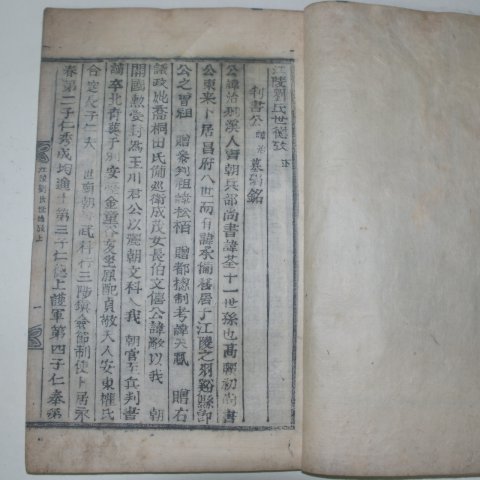 江陵劉氏世德攷 下
判書公 諱治 墓碣銘
公諱治翔漢人齊朝兵部尚書諱荃十一世孫也高麗初尚書
公東来卜居昌府八世而有諱承備舊居于江陵之羽谿縣卽
公之曾祖 贈參判祖諱松栢 贈都摠制考諱天鳳 贈右
議政娶喬桐田氏備巡衛成茂女長伯文僖公諱敞以我 朝
開國勳受封爲玉川君公以麗朝文科入我 朝官至判書
卒北青葬于 配貞敬夫人安東權氏
合窆長子仁夫 世南朝 武科行三陟鎭僉節制使卜居永
春第二子仁秀成均進士第三子仁德上護軍第四子仁奉第
江陵劉氏世德攷上
一